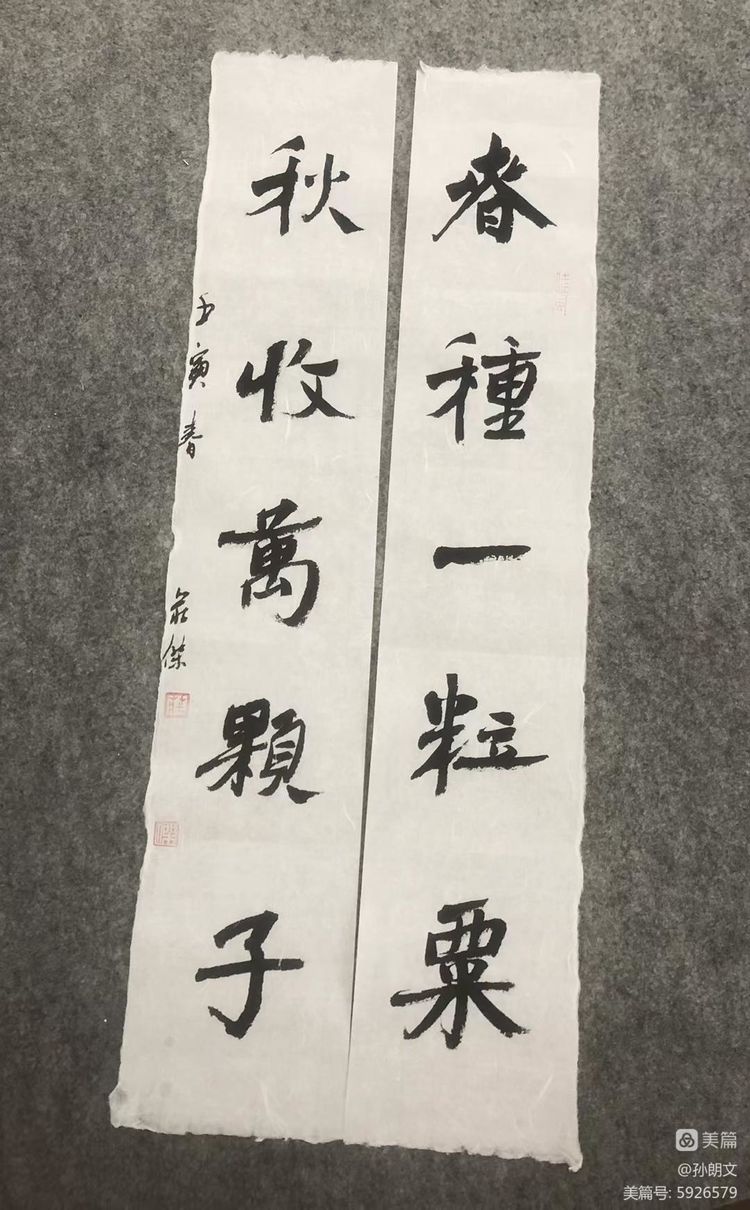 春種一粒粟
秋收萬顆子
壬寅春
莊傑
美篇
@孙朗文
美篇号: 5926579